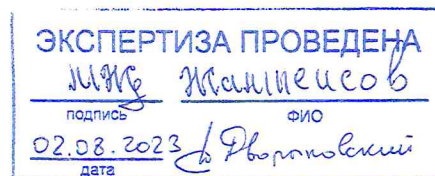 ЭКСПЕРТИЗА ПРОВЕДЕНА
Жаппеисов
подпись ФИО
02.08.2023 Дворяковский
дата